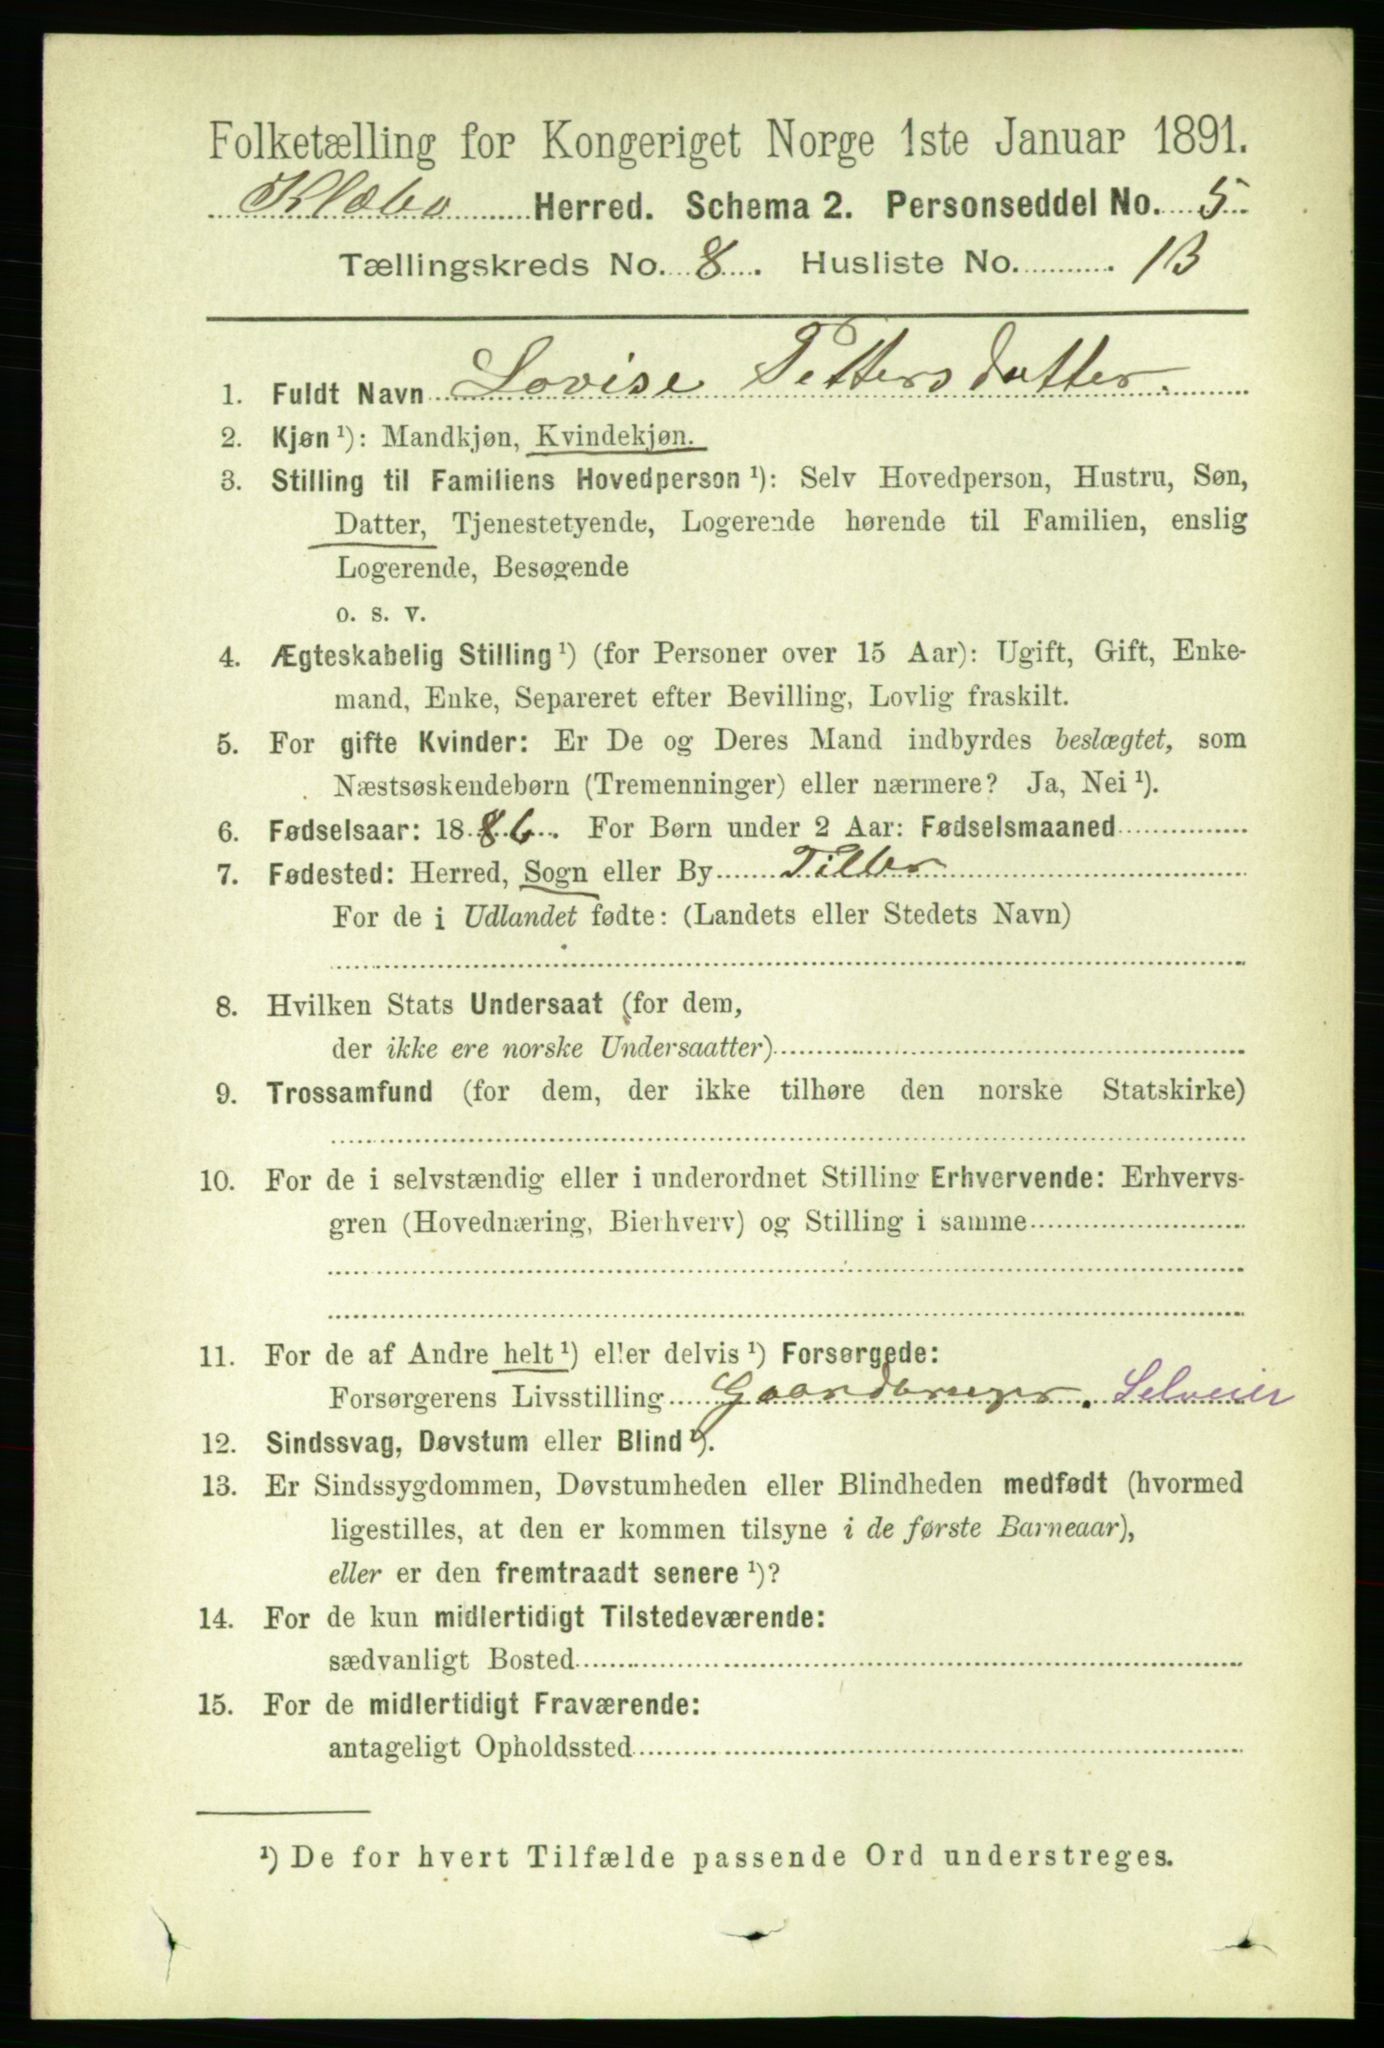 Folketælling for Kongeriget Norge 1ste Januar 1891.
Klæbo Herred. Schema 2. Personseddel No. 5
Tællingskreds No. 8. Husliste No. 13
1. Fuldt Navn Lovise Pettersdatter.
2. Kjøn ¹): Mandkjøn, Kvindekjøn.
3. Stilling til Familiens Hovedperson ¹): Selv Hovedperson, Hustru, Søn,
Datter, Tjenestetyende, Logerende hørende til Familien, enslig
Logerende, Besøgende
o. s. v.
4. Ægteskabelig Stilling ¹) (for Personer over 15 Aar): Ugift, Gift, Enke-
mand, Enke, Separeret efter Bevilling, Lovlig fraskilt.
5. For gifte Kvinder: Er De og Deres Mand indbyrdes beslægtet, som
Næstsøskendebørn (Tremenninger) eller nærmere? Ja, Nei ¹).
6. Fødselsaar: 1886. For Børn under 2 Aar: Fødselsmaaned
7. Fødested: Herred, Sogn eller By Tiller
For de i Udlandet fødte: (Landets eller Stedets Navn)
8. Hvilken Stats Undersaat (for dem,
der ikke ere norske Undersaatter)
9. Trossamfund (for dem, der ikke tilhøre den norske Statskirke)
10. For de i selvstændig eller i underordnet Stilling Erhvervende: Erhvervs-
gren (Hovednæring, Bierhverv) og Stilling i samme
11. For de af Andre helt ¹) eller delvis ¹) Forsørgede:
Forsørgerens Livsstilling Gaardbruger. Selveier
12. Sindssvag, Døvstum eller Blind ¹).
13. Er Sindssygdommen, Døvstumheden eller Blindheden medfødt (hvormed
ligestilles, at den er kommen tilsyne i de første Barneaar),
eller er den fremtraadt senere ¹)?
14. For de kun midlertidigt Tilstedeværende:
sædvanligt Bosted
15. For de midlertidigt Fraværende:
antageligt Opholdssted
¹) De for hvert Tilfælde passende Ord understreges.